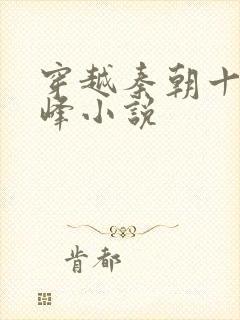 穿越秦朝十
峰小說
肯都